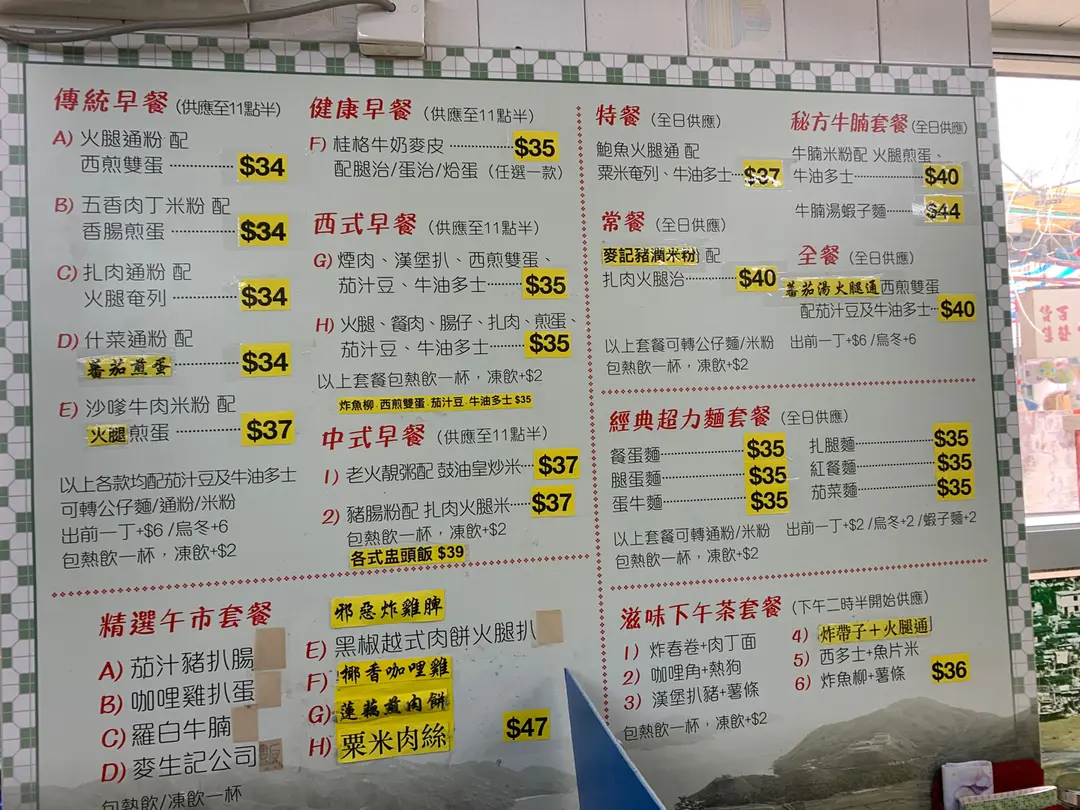 傳統早餐 (供應至11點半)
A) 火腿通粉 配
西煎雙蛋 $34
B) 五香肉丁米粉 配
香腸煎蛋 $34
C) 扎肉通粉 配
火腿奄列 $34
D) 什菜通粉 配
蕃茄煎蛋 $34
E) 沙嗲牛肉米粉 配
火腿煎蛋 $37
以上各款均配茄汁豆及牛油多士
可轉公仔麵/通粉/米粉
出前一丁+$6 /烏冬+6
包熱飲一杯，凍飲+$2
健康早餐 (供應至11點半)
F) 桂格牛奶麥皮 $35
配腿治/蛋治/烚蛋 (任選一款)
西式早餐 (供應至11點半)
G) 煙肉、漢堡扒、西煎雙蛋、
茄汁豆、牛油多士 $35
H) 火腿、餐肉、腸仔、扎肉、煎蛋、
茄汁豆、牛油多士 $35
以上套餐包熱飲一杯，凍飲+$2
炸魚柳．西煎雙蛋．茄汁豆．牛油多士 $35
中式早餐 (供應至11點半)
1) 老火靚粥配 鼓油皇炒米 $37
2) 豬腸粉配 扎肉火腿米 $37
包熱飲一杯，凍飲+$2
各式盅頭飯 $39
特餐 (全日供應)
鮑魚火腿通 配
粟米奄列、牛油多士 $37
常餐 (全日供應)
麥記豬潤米粉 配
扎肉火腿治 $40
以上套餐可轉公仔麵/米粉
包熱飲一杯，凍飲+$2
秘方牛腩套餐 (全日供應)
牛腩米粉配 火腿煎蛋、
牛油多士 $40
牛腩湯蝦子麵 $44
全餐 (全日供應)
蕃茄湯火腿通 西煎雙蛋
配茄汁豆及牛油多士 $40
出前一丁+$6 /烏冬+6
經典超力麵套餐 (全日供應)
餐蛋麵 $35
腿蛋麵 $35
蛋牛麵 $35
扎腿麵 $35
紅餐麵 $35
茄菜麵 $35
以上套餐可轉通粉/米粉
出前一丁+$2 /烏冬+2 /蝦子麵+2
包熱飲一杯，凍飲+$2
精選午市套餐
A) 茄汁豬扒腸
B) 咖哩雞扒蛋
C) 羅白牛腩
D) 麥生記公司
包熱飲/凍飲一杯
邪惡炸雞脾
E) 黑椒越式肉餅火腿扒
F) 椰香咖哩雞
G) 蓮藕煎肉餅
H) 粟米肉絲 $47
滋味下午茶套餐 (下午二時半開始供應)
1) 炸春卷+肉丁面
2) 咖哩角+熱狗
3) 漢堡扒豬+薯條
包熱飲一杯，凍飲+$2
4) 炸帶子＋火腿通
5) 西多士+魚片米
6) 炸魚柳+薯條 $36